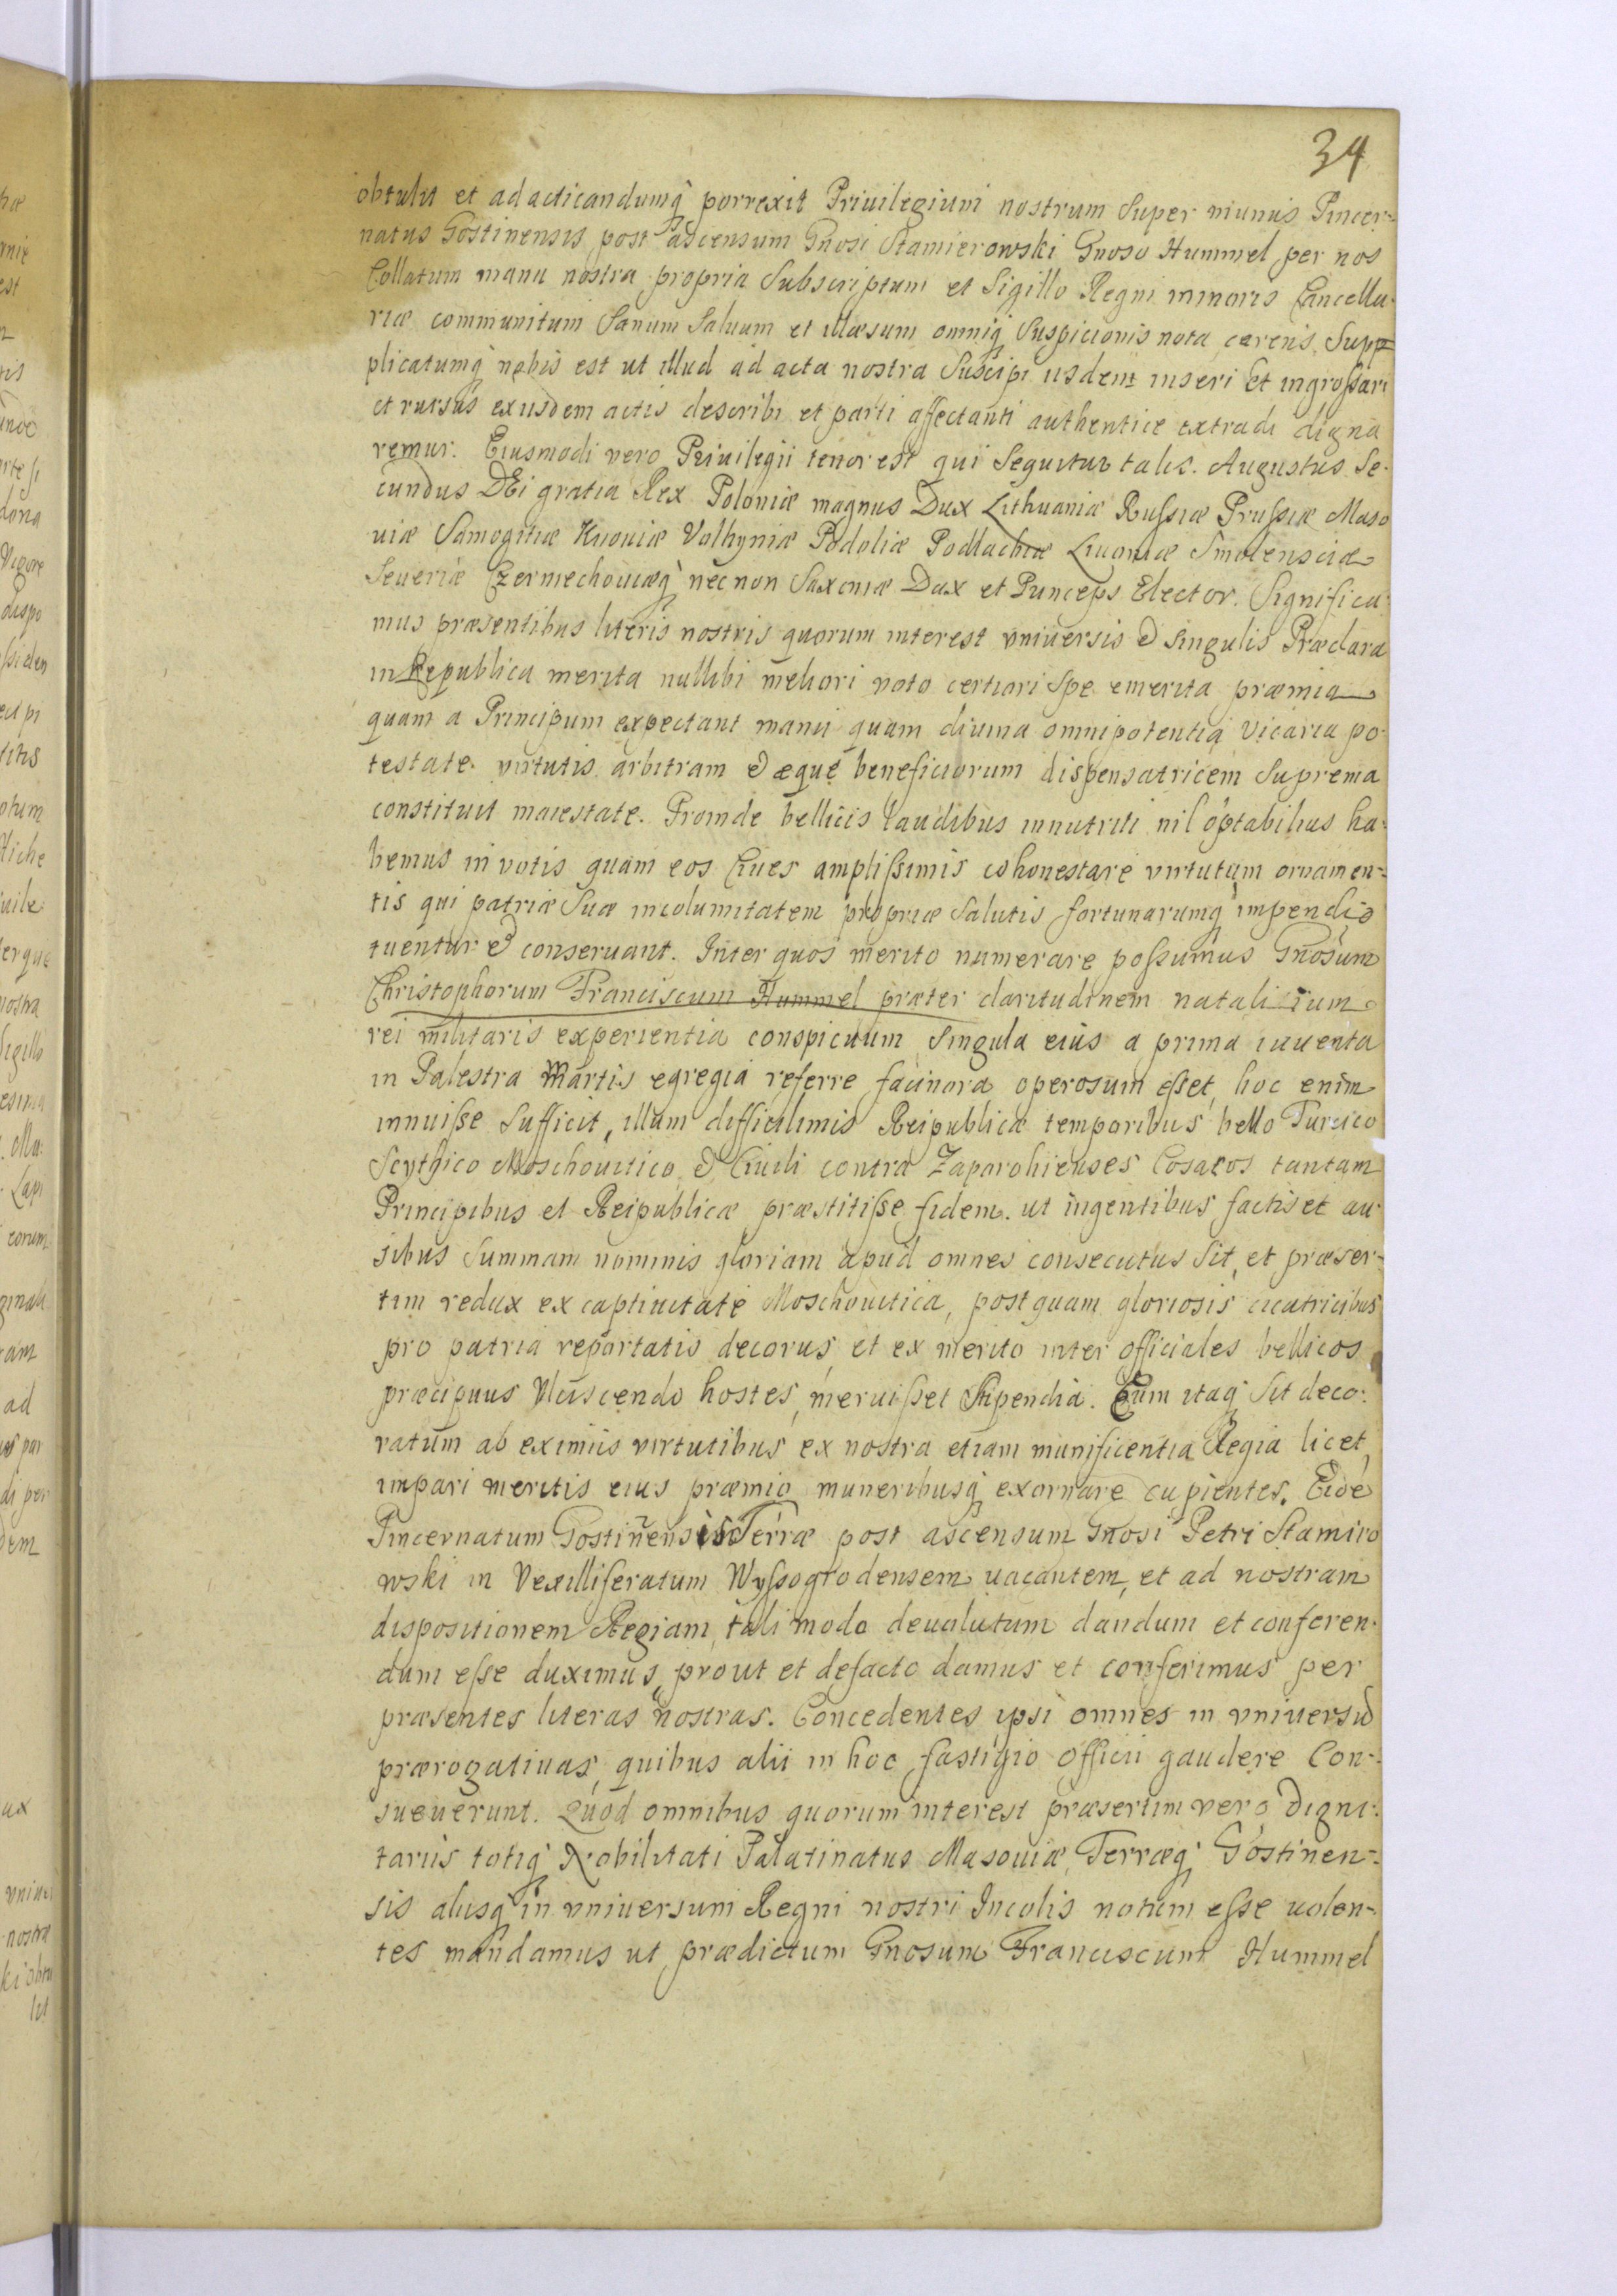 34
obtulit et ad acticandumq́ porrexit Priuilegium nostrum super munus Pincer-
natus Gostinensis post ascensum Gnosi Stamierowski Gnoso Hummel per nos
Collatum manu nostra propria Subscriptum et Sigillo Regni minoris Cancella-
riæ communitum Sanum Saluum et illæsum omniq́ Suspicionis nota carens Supp
plicatumq́ nobis est ut illud ad acta nostra Suscipi iisdem inseri et ingroſsari
et rursus ex iisdem actis describi et parti affectanti authentice extradi digna
remur. Eiusmodi vero Priuilegii tenor est qui Sequitur talis. Augustus Se-
cundus DEi gratia Rex Poloniæ magnus Dux Lithuaniæ Ruſsiæ Pruſsiæ Maso
uiæ Samogitiæ Kiiouiæ Volhyniæ Podoliæ Podlachiæ Liuoniæ Smolensciæ
Seueriæ Czerniechouiæq́ nec non Saxoniæ Dux et Princeps Elector. Significa-
mus præsentibus literis nostris quorum interest vniuersis & singulis Præclara
in Republica merita nullibi meliori voto certiori Spe emerita præmia
quam a Principum expectant manu quam diuina omnipotentia vicaria po-
testate virtutis arbitram & æque beneficiorum dispensatricem Suprema
constituit maiestate. Proinde bellicis laudibus innutriti nil optabilius ha-
bemus in votis quam eos Ciues ampliſsimis cohonestare virtutum ornamen-
tis qui patriæ Suæ incolumitatem propriæ Salutis fortunarumq́ impendio
tuentur & conseruant. Inter quos merito numerare poſsumus Gnosum
Christophorum Franciscum Hummel præter claritudinem natalitium
rei militaris experientia conspicuum Singula eius a prima iuuenta
in Palestra Martis egregia referre facinora operosum eſset, hoc enim
innuiſse Sufficit, illum difficilimis Reipublicæ temporibus bello Turcico
Scythico Moschouitico & Ciuili contra Zaparohienses Cosacos tantam
Principibus et Reipublicæ præstitiſse fidem. ut ingentibus factis et au-
sibus Summam nominis gloriam apud omnes consecutus Sit, et præser-
tim redux ex captiuitate Moschouitica, postquam gloriosis cicatricibus
pro patria reportatis decorus, et ex merito inter officiales bellicos
præcipuus Vlciscendo hostes, meruiſset Stipendia. Eum itaq́ Sit deco-
ratum ab eximiis virtutibus ex nostra etiam munificentia Regia licet,
impari meritis eius præmio muneribusq́ exornare cupientes. Eidé
Pincernatum Gostinensis Terræ post ascensum Gnosi Petri Stamiro
wski in Vexilliferatum Wyſsogrodensem uacantem, et ad nostram
dispositionem Regiam, tali modo deuolutum dandum et conferen-
dum eſse duximus, prout et defacto damus et conferimus per
præsentes literas nostras. Concedentes ipsi omnes in vniuersu
prærogatiuas, quibus alii in hoc fastigio Officii gaudere Con-
sueuerunt. Quod omnibus quorum interest præsertim vero Digni-
tariis totiq́ Nobilitati Palatinatus Masouiæ, Terræq́ Gostinen-
sis aliisq́ in vniuersum Regni nostri Incolis notum eſse uolen-
tes mandamus ut prædictum Gnosum Franciscum Hummel